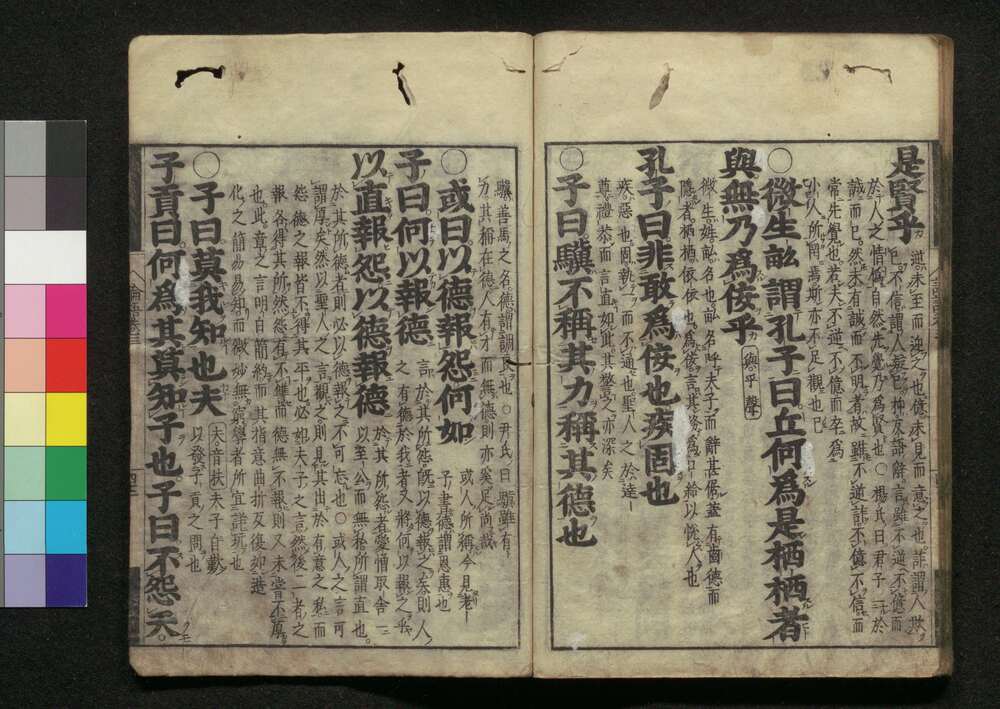 是賢乎
逆未至而迎之也億未見而意之也詐謂人欺
已不信謂人疑已抑反語辭言雖不逆不億而
於人之情僞自然先覺乃爲賢也○楊氏曰君子一於
誠而已然未有誠而不明者故雖不逆詐不億不信而
常先覺也若夫不逆不億而卒爲
小人所罔焉斯亦不足觀也已
○微生畝謂孔子曰丘何爲是栖栖者
與無乃爲佞乎 與平聲
微生姓畝名也畝名呼夫子而辭甚倨蓋有齒德而
隱者栖栖依依也爲佞言其務爲口給以悅人也
孔子曰非敢爲佞也疾固也
疾惡也固執一而不通也聖人之於達
尊禮恭而言直如此其警之亦深矣
○子曰驥不稱其力稱其德也
驥善馬之名德謂調良也○尹氏曰驥雖有
力其稱在德人有才而無德則亦奚足尚哉
○或曰以德報怨何如
或人所稱今見老
子書德謂恩惠也
子曰何以報德
言於其所怨既以德報之矣則人
之有德於我者又將何以報之乎
以直報怨以德報德
於其所怨者愛憎取舍一
以至公而無私所謂直也
於其所德者則必以德報之不可忘也○或人之言可
謂厚矣然以聖人之言觀之則見其出於有意之私而
怨德之報皆不得其平也必如夫子之言然後二者之
報各得其所然怨有不讎而德無不報則又未嘗不厚
也此章之言明白簡約而其指意曲折反復如造
化之簡易易知而微妙無窮學者所宜詳玩也
○子曰莫我知也夫
夫音扶夫子自歎
以發子貢之問也
子貢曰何爲其莫知子也子曰不怨天